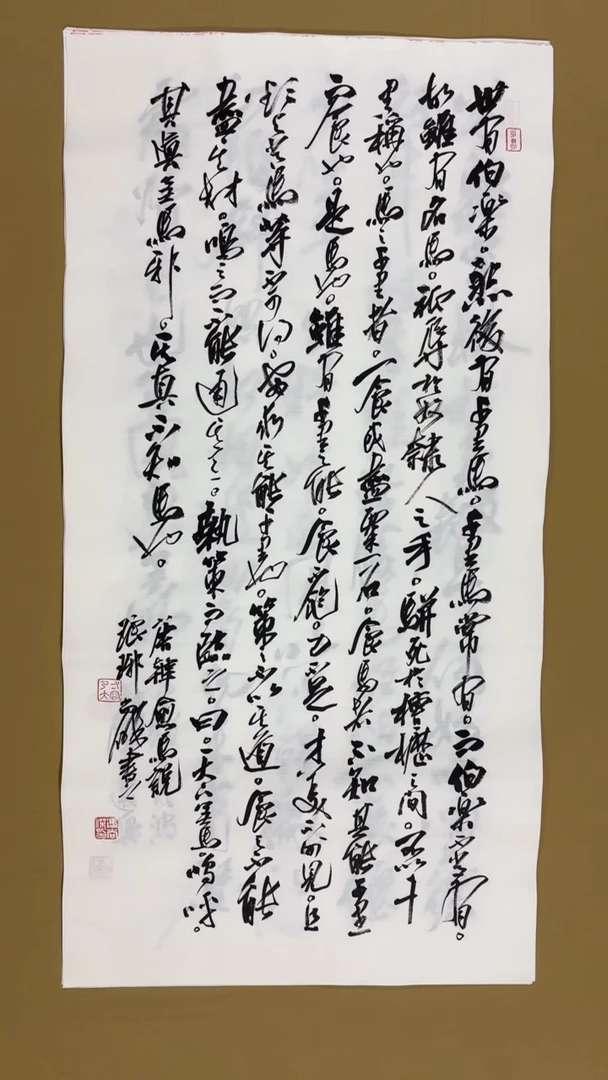 世有伯楽。然後有千里馬。千里馬常有。而伯楽不常有。
故雖有名馬。祗辱於奴隸人之手。駢死於槽櫪之間。不以千
里稱也。馬之千里者。一食或盡粟一石。食馬者不知其能千里
而食也。是馬也。雖有千里之能。食不飽。力不足。才美不外見。且
欲與常馬等不可得。安求其能千里也。策之不以其道。食之不能
盡其材。鳴之而不能通其意。執策而臨之。曰。天下無馬。嗚呼。
其真無馬邪。其真不知馬也。
唐韓愈馬說
瑯琊書